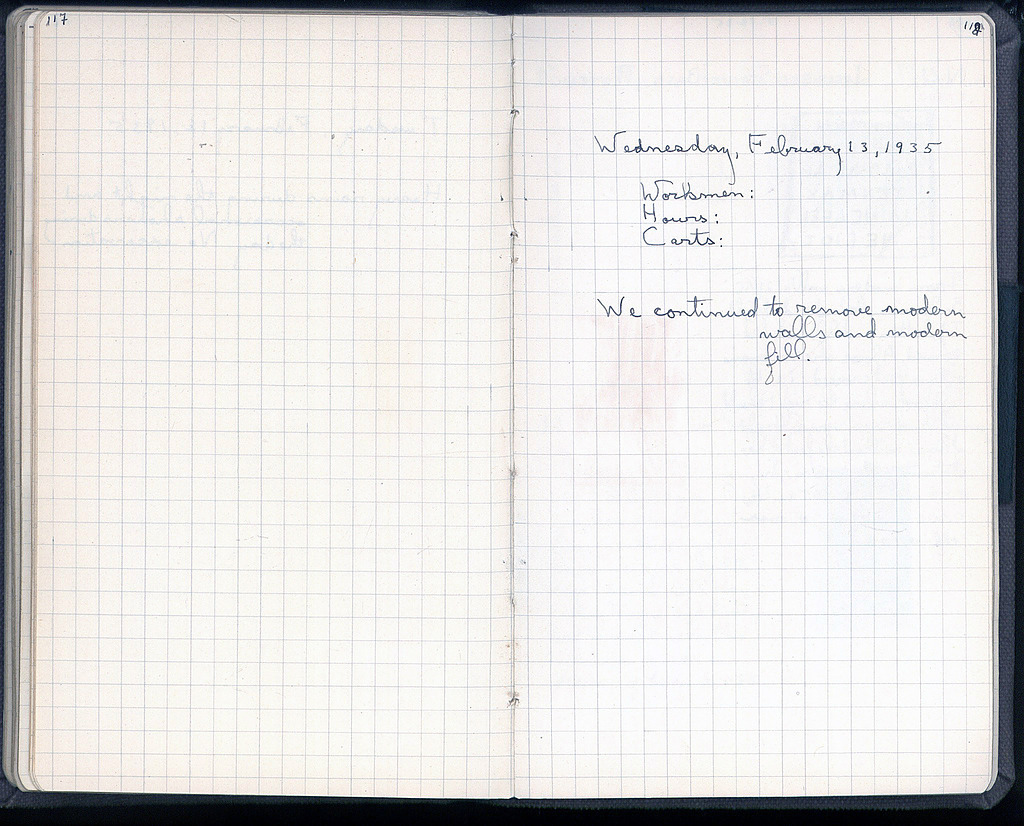 117
118
Wednesday, February 13, 1935
Workmen:
Hours:
Carts:
We continued to remove modern
walls and modern
fill.